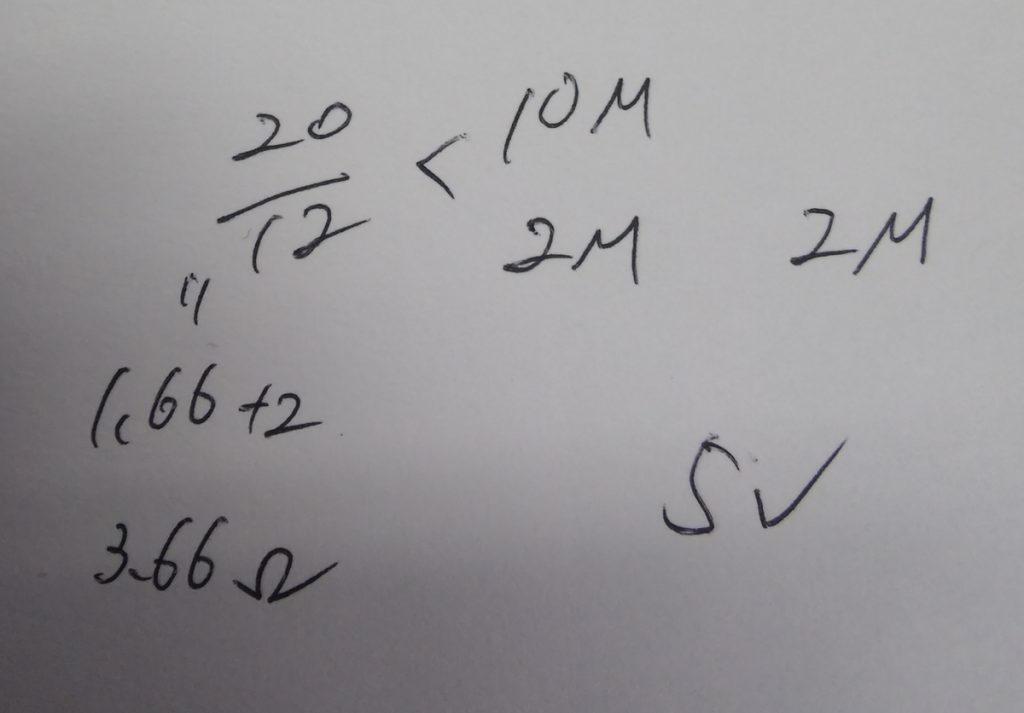 20/12 < 10M
2M 2M
"
1.66 +2
5V
3.66 Ω